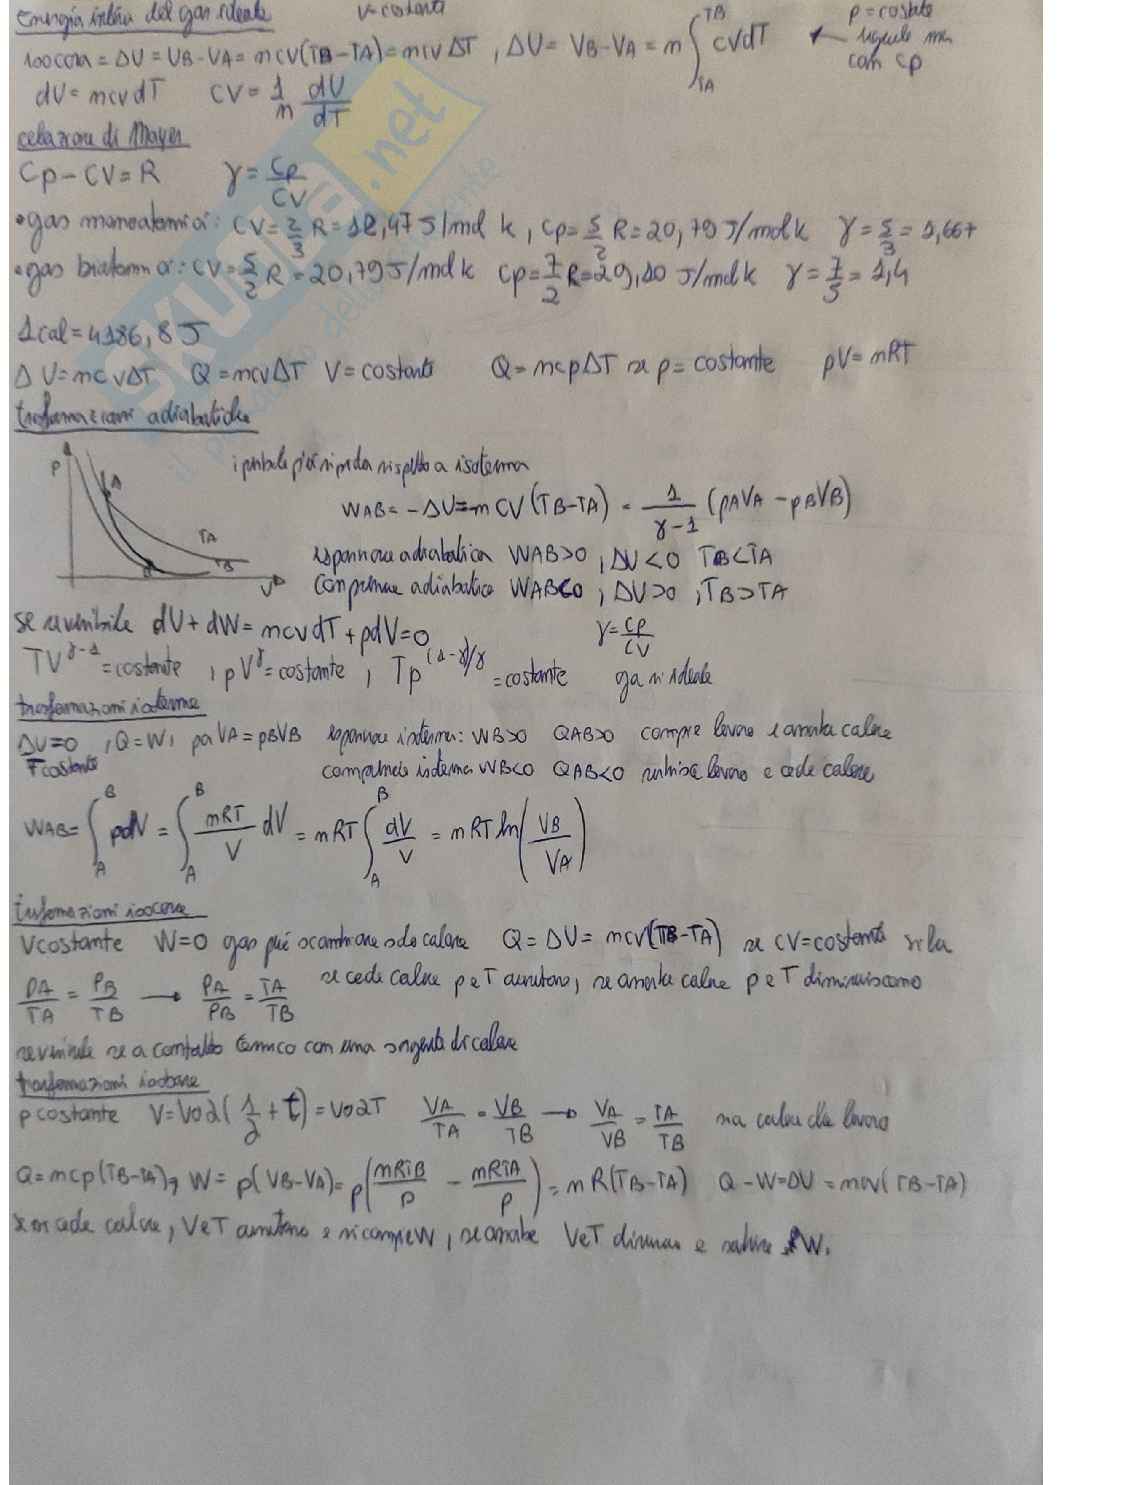 Energia interna del gas ideale V=costante p=costante
isocora = ΔU = UB-UA = ncv(TB-TA) = ncvΔT , ΔU = UB-UA = n∫TA TB cVdT ← uguale ma con cp
dU = ncvdT CV = 1/n dU/dT
relazione di Mayer
Cp-CV=R γ = Cp/CV
•gas monoatomici: CV = 2/3 R = 12,47 J/mol k, Cp = 5/2 R = 20,79 J/mol k γ = 5/3 = 1,667
•gas biatomici: CV = 5/2 R = 20,79 J/mol k Cp = 7/2 R = 29,10 J/mol k γ = 7/5 = 1,4
1cal = 4186,8 J
ΔU = ncvΔT Q = ncvΔT V=costante Q = ncpΔT se p=costante pV=nRT
trasformazioni adiabatiche
P A TA B TB V
rispetto a isoterma
WAB = -ΔU = -nCV(TB-TA) = 1/γ-1 (pAVA - pBVB)
espansione adiabatica WAB>0 , ΔU<0 TB<TA
compressione adiabatica WAB<0 , ΔU>0 , TB>TA
se reversibile dU+dW = ncvdT+pdV=0 γ = Cp/CV
TV^γ-1 = costante , pV^γ = costante , Tp^(1-γ)/γ = costante gas ideale
trasformazioni isoterme
ΔU=0 , Q=W, pAVA = pBVB espansione isoterma: WB>0 QAB>0 compie lavoro e assorbe calore
T costante compressione isoterma WB<0 QAB<0 subisce lavoro e cede calore
WAB = ∫A B pdV = ∫A B nRT/V dV = nRT ∫A B dV/V = nRT ln(VB/VA)
trasformazioni isocore
Vcostante W=0 gas può scambiare solo calore Q = ΔU = ncv(TB-TA) se CV=costante
PA/TA = PB/TB → PA/PB = TA/TB se cede calore p e T aumentano, se assorbe calore p e T diminuiscono
reversibile se a contatto termico con una sorgente di calore
trasformazioni isobare
p costante V = V0 2(1/2 + t) = V0 2T VA/TA = VB/TB → VA/VB = TA/TB sia calore che lavoro
Q = ncp(TB-TA), W = p(VB-VA) = p(nRTB/p - nRTA/p) = nR(TB-TA) Q-W=ΔU = ncv(TB-TA)
cede calore, V e T aumentano e si compie W, se assorbe V e T e subisce W.
SKUOLA.net